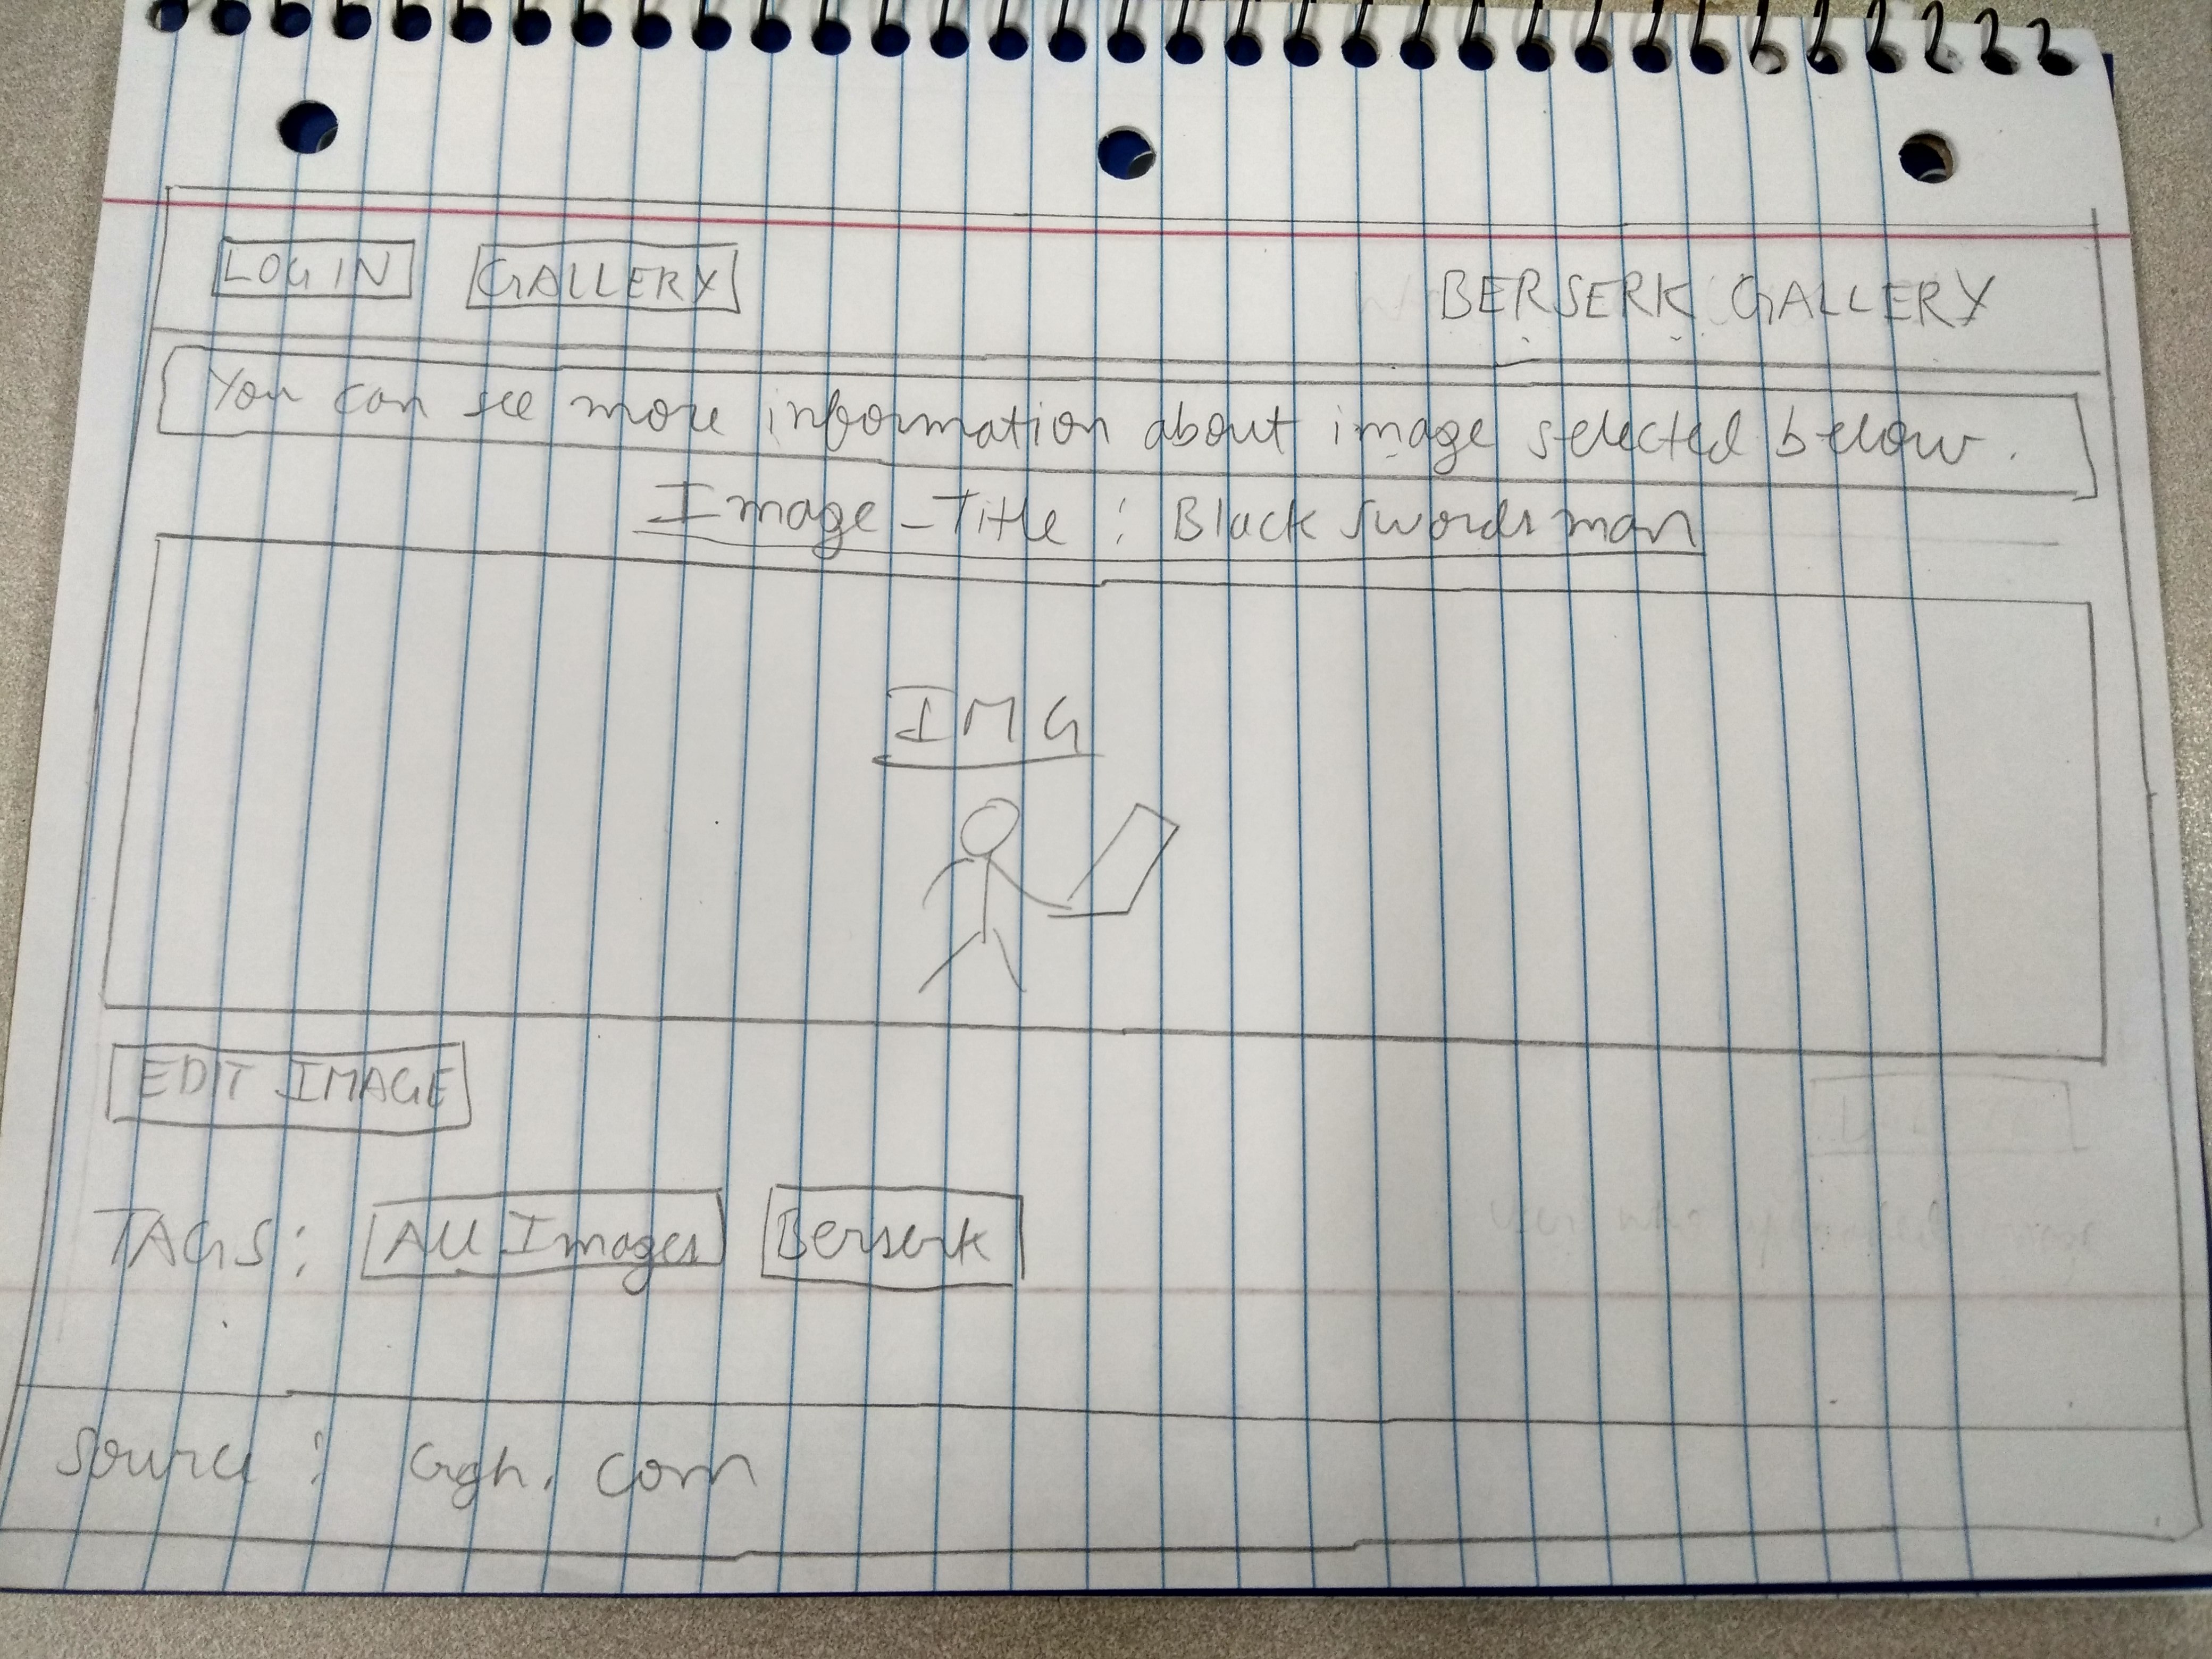 LOGIN GALLERY BERSERK GALLERY
You can see more information about image selected below.
Image-Title : Black Swordsman
IMG
EDIT IMAGE
TAGS: All Images Berserk
Source : Ggh.com